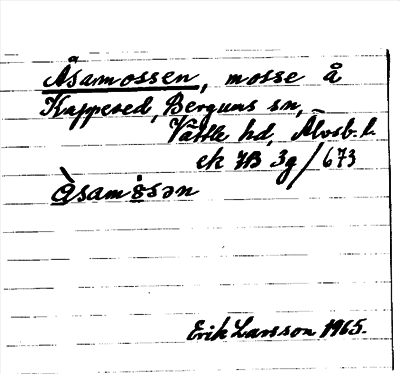 Åsamossen, mosse å
Kappered, Bergums sn,
Vättle hd, Älvsb. l.
ek 7B 3g/673
Àsamòsən
Erik Larsson 1965.